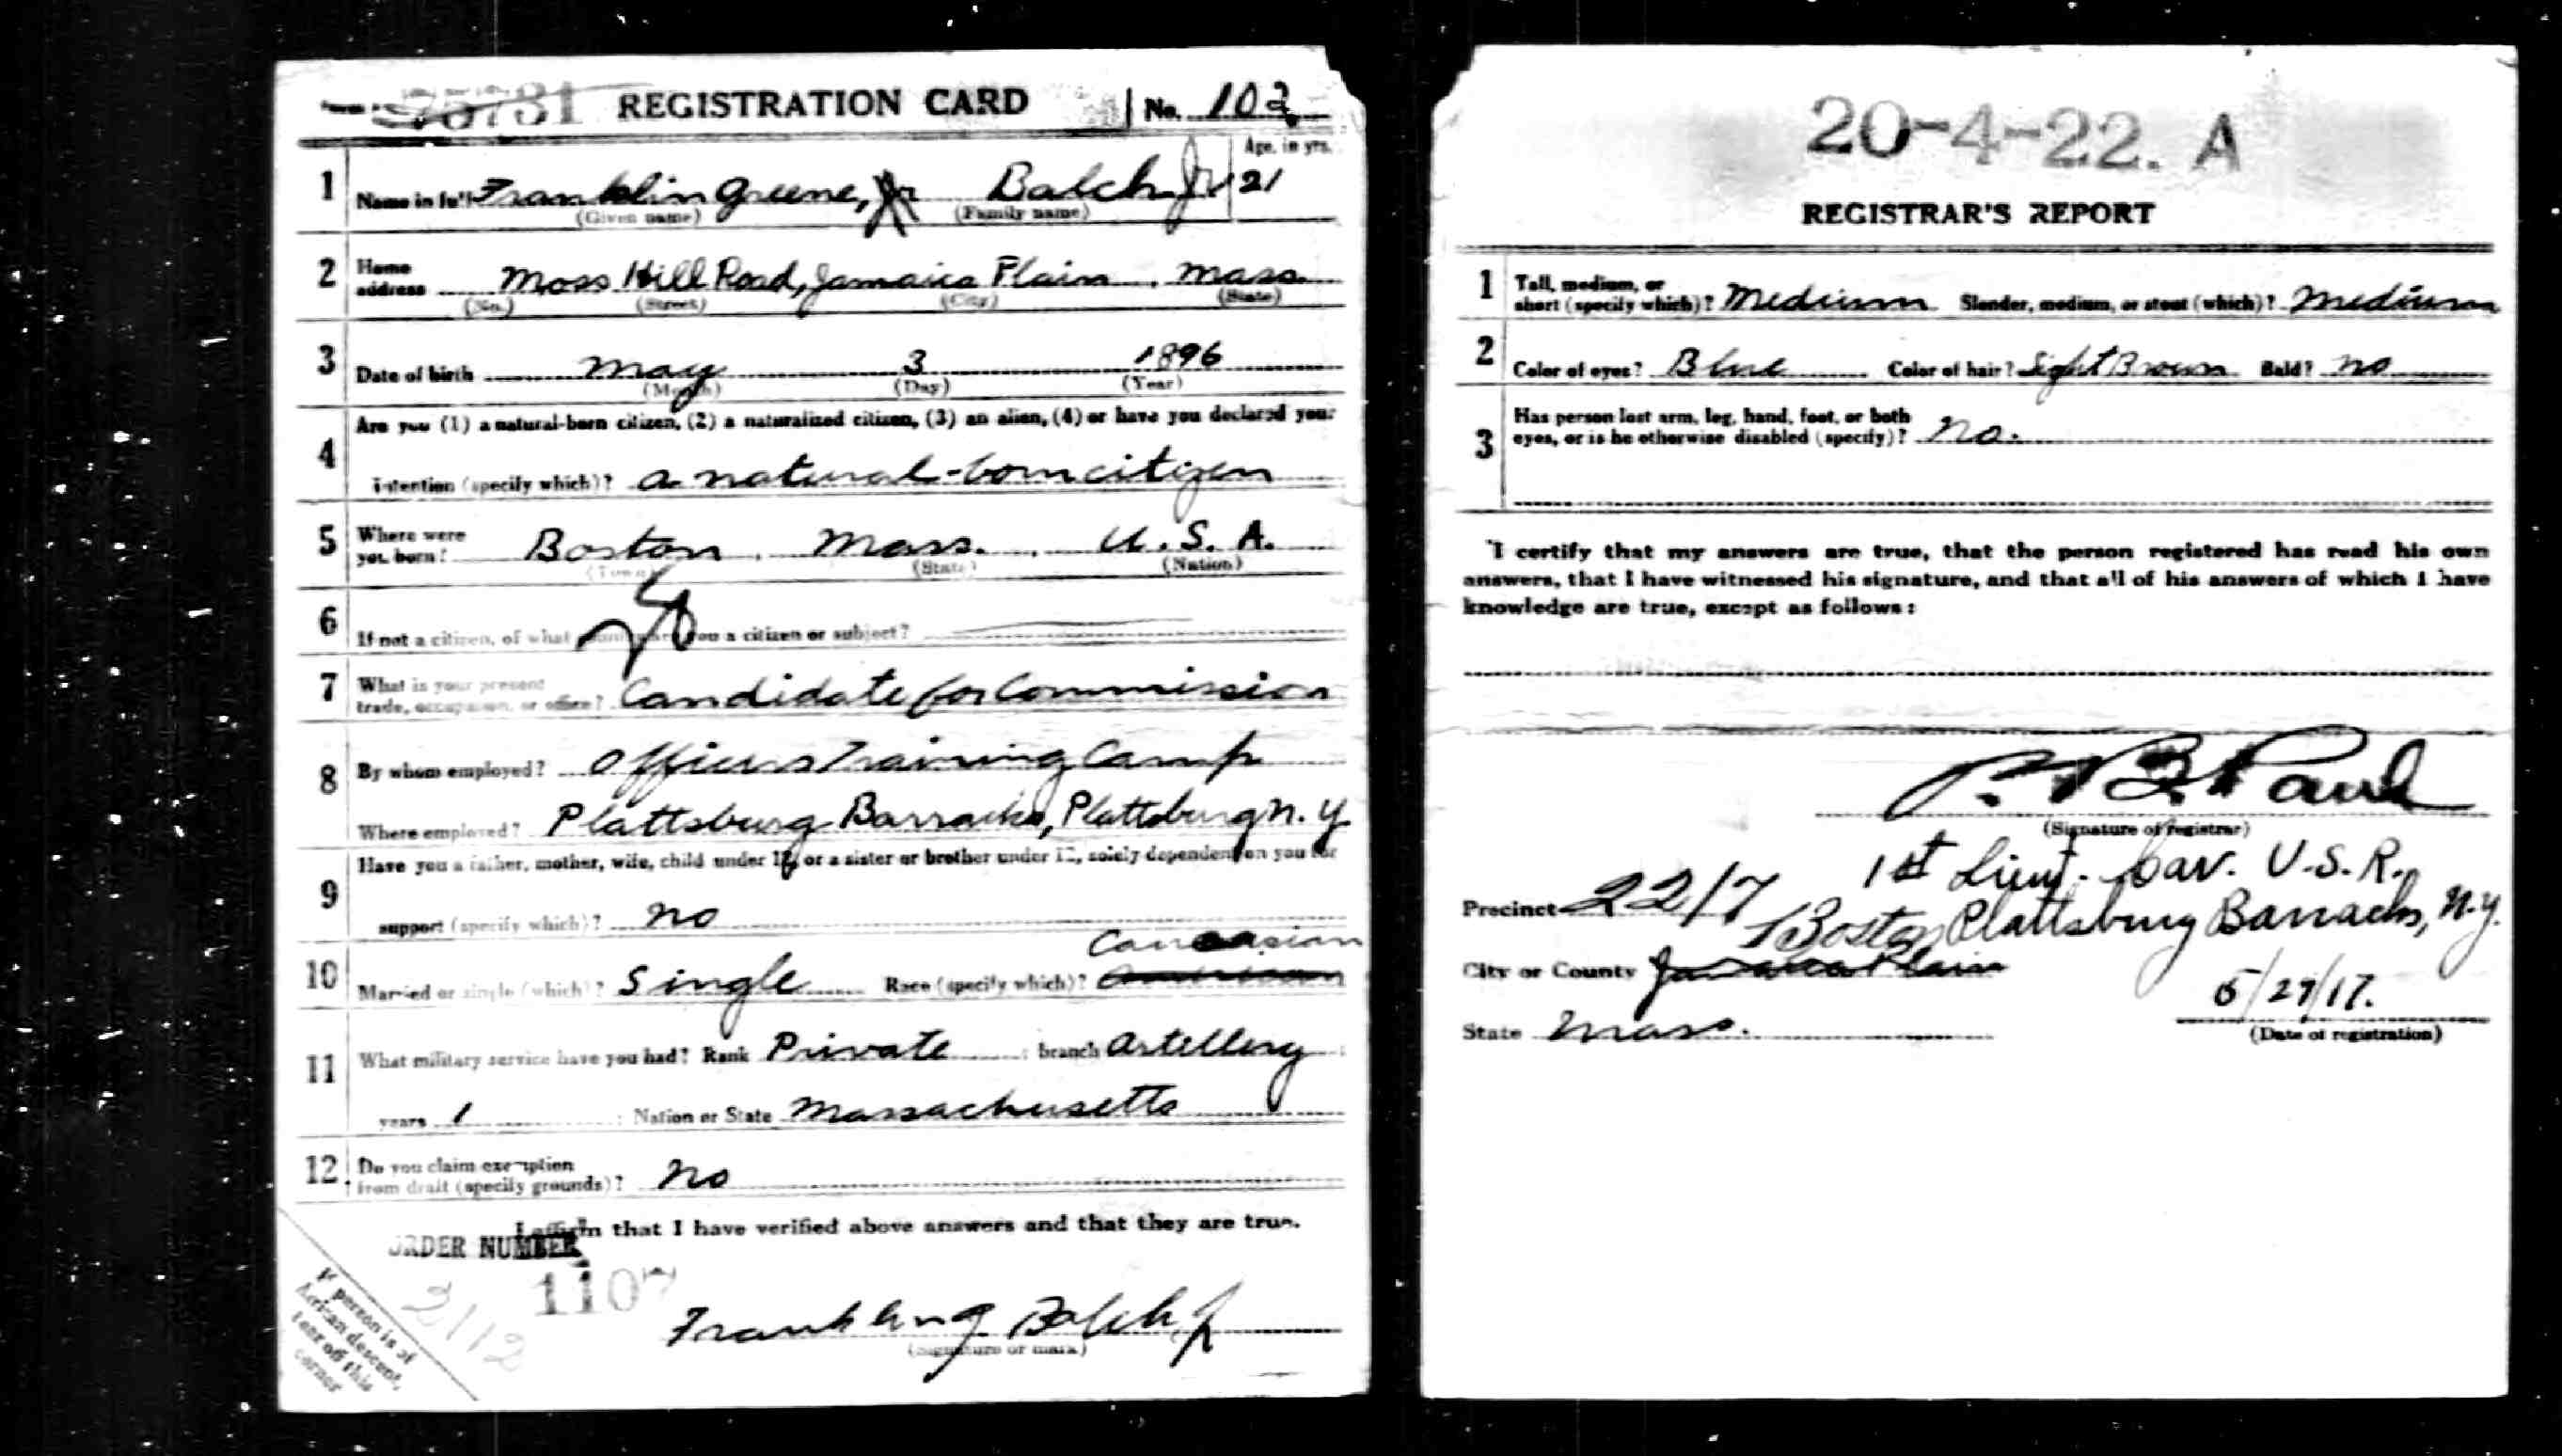 REGISTRATION CARD No. 102
Age, in yrs.
1 Name in full Franklin Greene, Jr Balch Jr 21
(Given name) (Family name)
2 Home address Moss Hill Road, Jamaica Plain, Mass.
(No.) (Street) (City) (State)
3 Date of birth May 3 1896
(Month) (Day) (Year)
4 Are you (1) a natural-born citizen, (2) a naturalized citizen, (3) an alien, (4) or have you declared your
intention (specify which)? a natural-born citizen
5 Where were you born? Boston, Mass. U.S.A.
(Town) (State) (Nation)
6 If not a citizen, of what you a citizen or subject?
7 What is your present trade, occupation, or office? Candidate for Commission
8 By whom employed? Officers Training Camp
Where employed? Plattsburg Barracks, Plattsburg N.Y.
9 Have you a father, mother, wife, child under 12, or a sister or brother under 12, solely dependent on you for
support (specify which)? No
Caucasian
10 Married or single (which)? Single Race (specify which)? American
11 What military service have you had? Rank Private ; branch Artellery ;
years 1 ; Nation or State Massachusetts
12. Do you claim exemption from draft (specify grounds)? No
I affirm that I have verified above answers and that they are true.
ORDER NUMBER
1107
Franklin G Balch Jr
(Signature or mark)
If person is of
African descent,
tear off this
corner
20-4-22. A
REGISTRAR'S REPORT
1 Tall, medium, or short (specify which)? Medium Slender, medium, or stout (which)? Medium
2 Color of eyes? Blue Color of hair? Light Brown Bald? No
3 Has person lost arm, leg, hand, foot, or both eyes, or is he otherwise disabled (specify)? No.
I certify that my answers are true, that the person registered has read his own
answers, that I have witnessed his signature, and that all of his answers of which I have
knowledge are true, except as follows:
Paul
(Signature of registrar)
1st Lieut. Cav. U.S.R.
Precinct 22/7
Plattsburg Barracks, N.Y.
Boston
City or County Jamaica Plain
5/29/17.
State Mass.
(Date of registration)